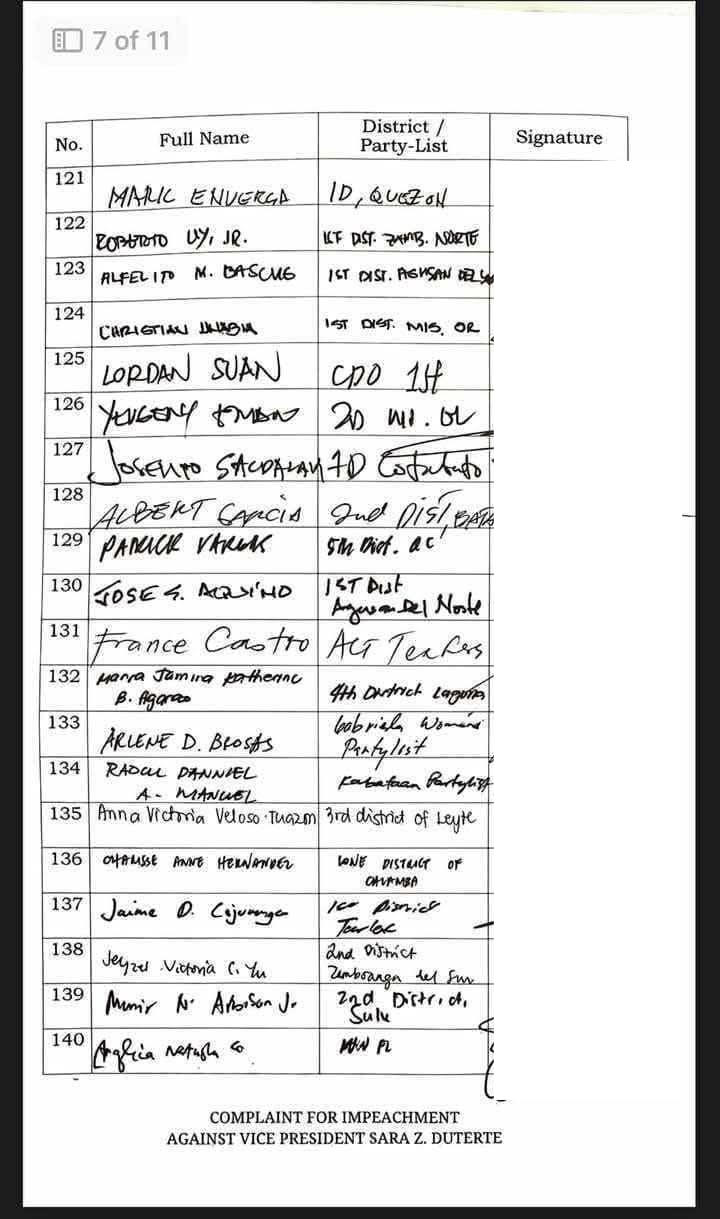 7 of 11
No. Full Name District / Party-List Signature
121 MARK ENVERGA 1D, QUEZON
122 ROBERTO UY, JR. 1ST DIST. ZAMB. NORTE
123 ALFELITO M. BASCUG 1ST DIST. AGUSAN DEL
124 CHRISTIAN UNABIA 1ST DIST. MIS. OR
125 LORDAN SUAN CDO 1st
126 YEVGENY 2D
127 JOSELITO SACDALAN 1D Cotabato
128 ALBERT GARCIA 2nd DIST, BATA
129 PATRICK VARGAS 5th Dist. QC
130 JOSE S. AQUINO 1ST Dist
Agusan Del Norte
131 France Castro ACT Teachers
132 Maria Jamina Katherine
B. Agarao 4th District Laguna
133 ARLENE D. BROSAS Gabriela Women's
Partylist
134 RAOUL DANNIEL
A. MANUEL Kabataan Partylist
135 Anna Victoria Veloso-Tuazon 3rd district of Leyte
136 CHARISSE ANNE HERNANDEZ LONE DISTRICT OF
CALAMBA
137 Jaime D. Cojuangco 1st District
Tarlac
138 Jeyzel Victoria C. Yu 2nd District
Zamboanga del Sur
139 Munir N. Arbison Jr. 2nd District,
Sulu
140 Anglica Natasha Co
COMPLAINT FOR IMPEACHMENT
AGAINST VICE PRESIDENT SARA Z. DUTERTE